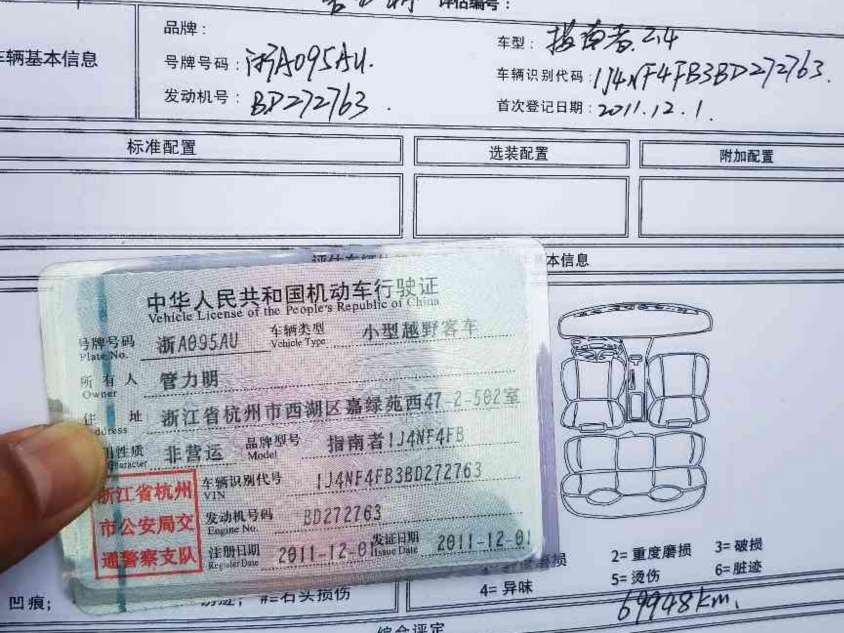 评估编号：
品牌：
车型：指南者 2.4
车辆基本信息
号牌号码：浙A095AU.
车辆识别代码：1J4NF4FB3BD272763.
发动机号：BD272763.
首次登记日期：2011.12.1.
标准配置 选装配置 附加配置
基本信息
中华人民共和国机动车行驶证
Vehicle License of the People's Republic of China
号牌号码 浙A095AU 车辆类型 小型越野客车
Plate No. Vehicle Type
所有人 管力明
Owner
住 址 浙江省杭州市西湖区嘉绿苑西47-2-502室
Address
用性质 非营运 品牌型号 指南者1J4NF4FB
Character Model
浙江省杭州
市公安局交
通警察支队
车辆识别代号 1J4NF4FB3BD272763
VIN
发动机号码 BD272763
Engine No.
注册日期 2011-12-01 发证日期 2011-12-01
Register Date Issue Date
磨损 2=重度磨损 3=破损
4=异味 5=烫伤 6=脏迹
凹痕； #=石头损伤
69948km.
综合评定